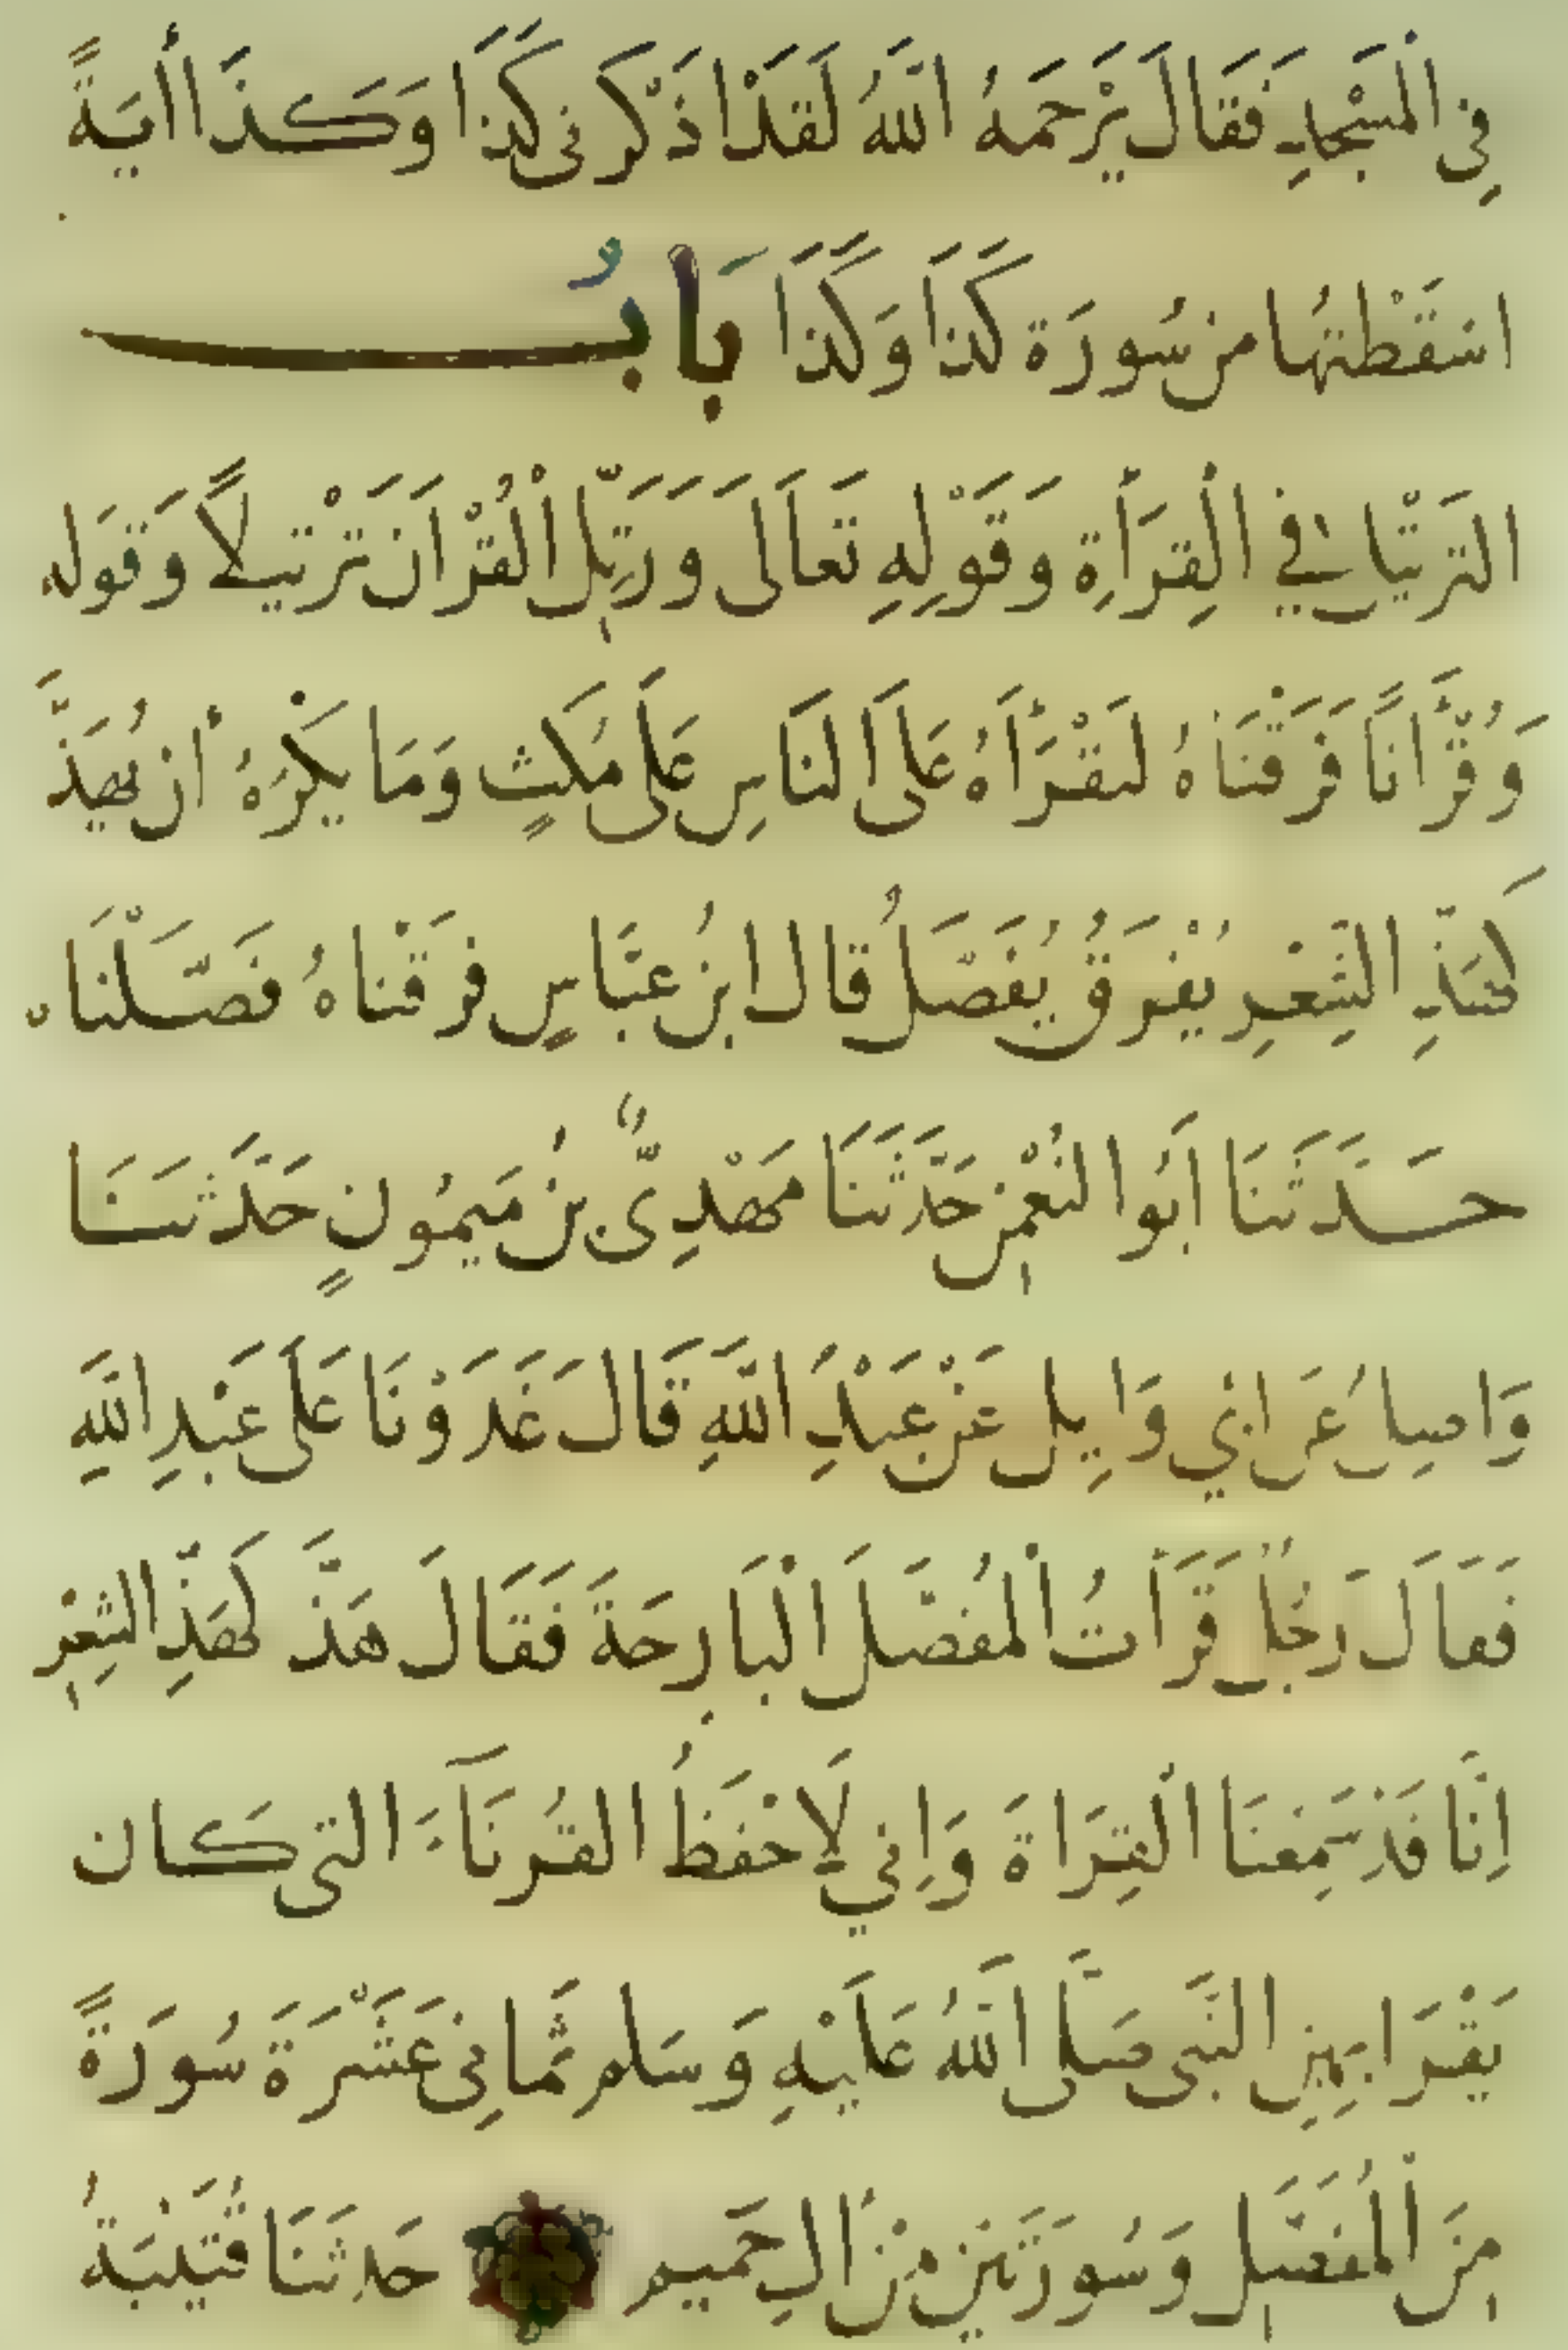 فِي الْمَسْجِدِ فَقَالَ يَرْحَمُهُ اللّٰهُ لَقَدْ اَذْكَرَنِي كَذَا وَكَذَا أٰيَةً
اسْقَطْتُهَا مِنْ سُورَةِ كَذَا وَكَذَا بَابُ
التَرْتِيلِ فِي الْقِرَأَةِ وَقَوْلِهِ تَعَالَى وَرَتِّلِ الْقُرْاٰنَ تَرْتِيلًا وَقَوْلِه
وَقُرْأٰنًا فَرَقْنَاهُ لِتَقْرَأَهُ عَلَى النَاسِ عَلَى مُكْثٍ وَمَا يُكْرَهُ أَنْ يُهَذَّ
كَهَذِّ الشِّعْرِ يُفْرَقُ يُفَصَّلُ قَالَ ابْنُ عَبَّاسٍ فَرَقْنَاهُ فَصَّلْنَاه
حَدَّثَنَا اَبُو النُعْمٰنِ حَدَّثَنَا مَهْدِيُّ بْنُ مَيْمُونٍ حَدَّثَنَا
وَاصِلٌ عَنْ اَبِي وَايِلٍ عَنْ عَبْدِ اللّٰهِ قَالَ غَدَوْنَا عَلَى عَبْدِ اللّٰهِ
فَقَالَ رَجُلٌ قَرَأْتُ الْمُفَصَّلَ الْبَارِحَةَ فَقَالَ هَذَّ كَهَذِّ الشِّعْرِ
اِنَّا قَدْ سَمِعْنَا الْقِرَاةَ وَاِنِّي لَاحْفَظُ القُرَنَآءَ التِي كَان
يَقْرَا بِهِنِ النَبِي صَلَّى اللّٰهُ عَلَيْهِ وَسَلم ثَمَانِي عَشْرَةَ سُورَةً
مِنَ الْمُفَصَّلِ وَسُورَتَيْنِ مِنْ اٰلِ حَمِيم حَدثَنَا قُتَيْبَةُ